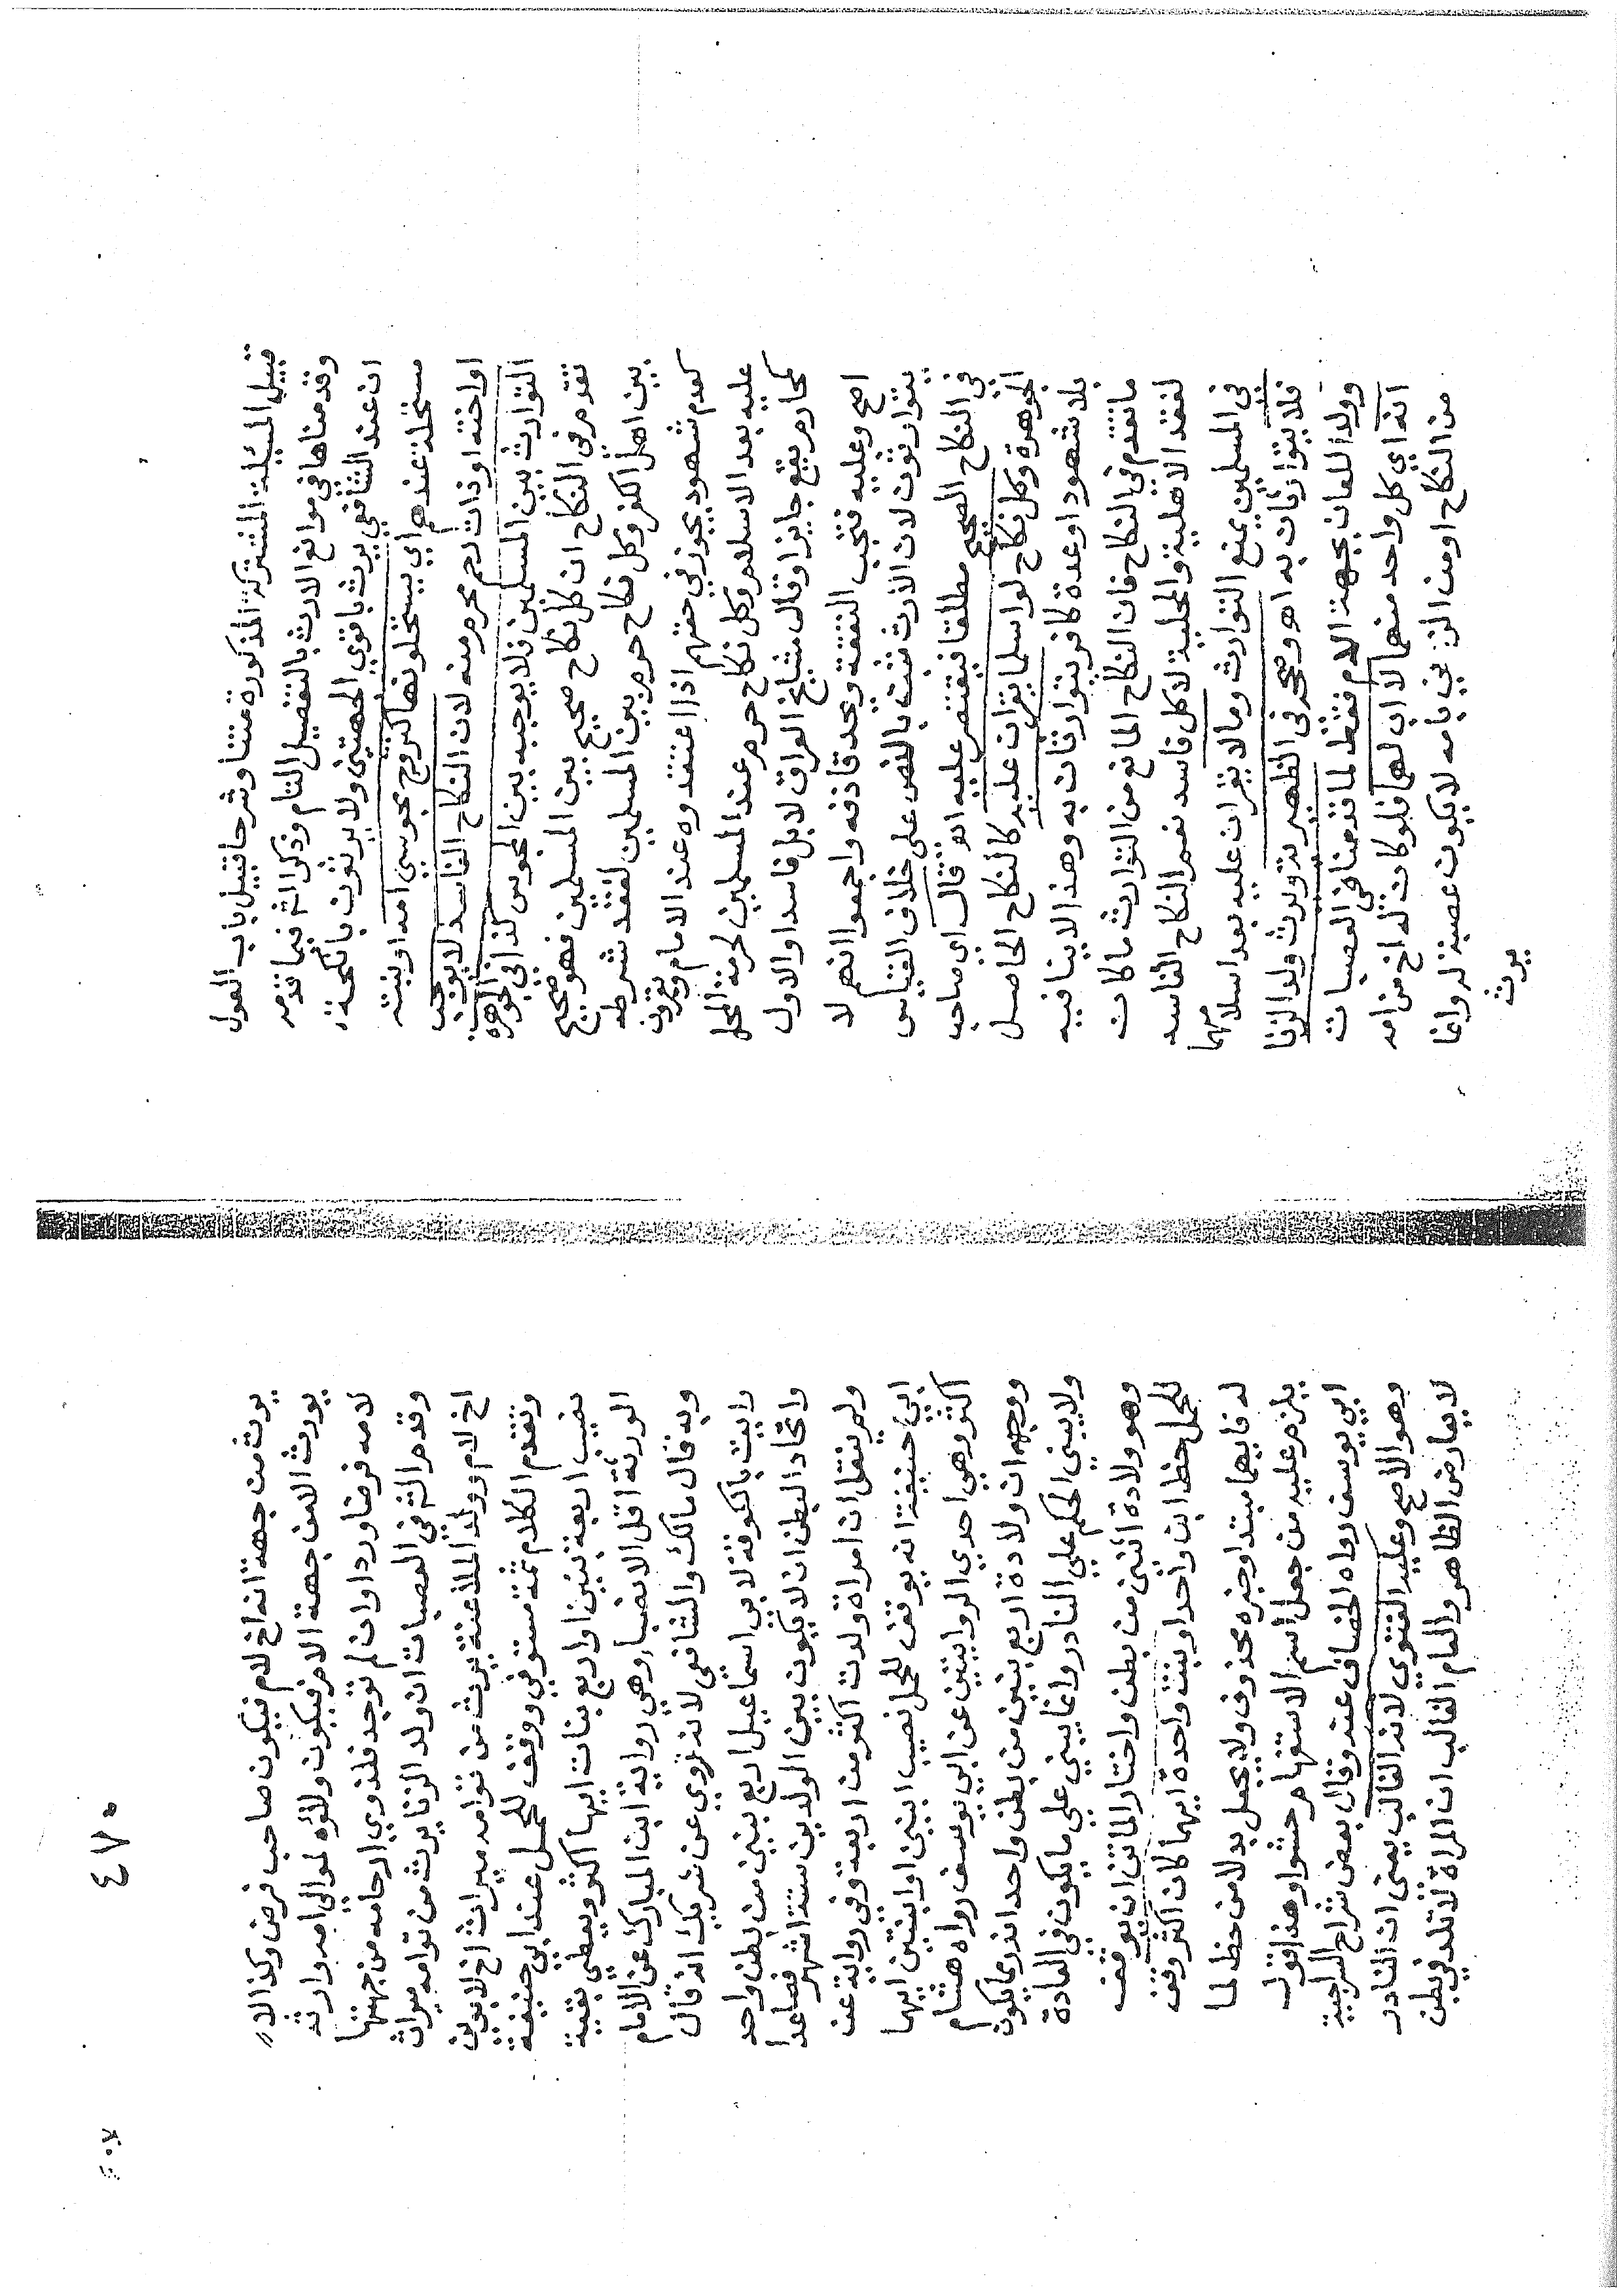 قبيل المسئلة المشتركة المذكورة متنا وشرحا قبيل باب العول
وقدمناها في موانع الارث بالتفصيل التام وذكر الشر فيما قدمه
ان عند الشافعي يرث باقوي الجهتين ولا يرثون بانكحة
مستحلة عندهم اي يستحلونها كتزوج مجوسي امه او بنته
او اخته او ذات رحم محرم منه لان النكاح الفاسد لا يوجب
التوارث بين المسلمين فلا يوجبه بين المجوس كذا في الجوهرة
تقدم في النكاح ان كل نكاح صحيح بين المسلمين فهو صحيح
بين اهل الكفر وكل نكاح حرم بين المسلمين لفقد شرطه
كعدم شهود يجوز في حقهم اذا اعتقدوه عند الامام ويقرون
عليه بعد الاسلام وكل نكاح حرم عند المسلمين لحرمة المحل
كمحارم يقع جايزا وقال مشايخ العراق لا بل فاسدا والاول
اصح وعليه فتجب النفقة ويحد قاذفه واجمعوا انهم لا
يتوارثون لان الارث ثبت بالنص على خلاف القياس
في النكاح الصحيح مطلقا فيقتصر عليه اهـ قال اي صاحب
الجوهرة وكل نكاح لو اسلما يقران عليه كالنكاح الحاصل
بلا شهود او عدة كافر يتوارثان به وهذا لا ينافيه
ما تقدم في النكاح فان النكاح المانع من التوارث ما كان
لفقد الاهلية والمحلية لا كل فاسد نعم النكاح الفاسد
في المسلمين يمنع التوارث وما لا يقران عليه بعد اسلامهما
فلا يتوارثان به اهـ وصححه في الظهيرية ويرث ولد الزنا
وولد اللعان بجهة الام فقط لما قدمنا في العصبات
انه اي كل واحد منهما لا اب لهما فلو كان له اخ من امه
من النكاح او من الزنى بامه لا يكون عصبة له وانما
يرث
٤٧٥
يرث من جهة انه اخ لام فيكون صاحب فرض وكذا لا
يورث الا من جهة الام فيكون ولاؤه لموالي امه وارثه
لامه فرضا وردا وان لم توجد فلذوي ارحامه من جهتها
وقدم الشر في العصبات ان ولد الزنا يرث من توامه ميراث
اخ لام وولد الملاعنة يرث من توامه ميراث اخ لابوين
وتقدم الكلام ثمة مستوفي ووقف للحمل عند ابي حنيفة
نصيب اربعة بنين او اربع بنات ايها اكثر ويعطي بقية
الورثة اقل الانصبا وهي رواية ابن المبارك عن الامام
وبه قال مالك والشافعي لانه روي عن شريك انه قال
رايت بالكوفة لابن اسماعيل اربع بنين من بطن واحد
واتحاد البطن ان لا يكون بين الولدين ستة اشهر فصاعدا
ولم ينقل ان امراة ولدت اكثر من اربعة وفي رواية عن
ابي حنيفة انه يوقف للحمل نصيب ابنين او ابنتين ايهما
اكثر وهي احدي الروايتين عن ابي يوسف رواه هشام
ووجهه ان ولادة اربع بنين من بطن واحد اندر ما يكون
ولا يبني الحكم علي النادر وانما يبني علي ما يكون في العادة
وهو ولادة اثنين من بطن واختار الماتن ان يوقف
للحمل حظ ابن واحد او بنت واحدة ايهما كان اكثر وقف
له فايهما مبتدا وخبره محذوف ولا يجعل بدلا من حظ لما
يلزم عليه من جعل اسم الاستفهام حشوا وهذا قول
ابي يوسف رواه الخصاف عنه وقال بعض شراح السراجية
وهو الاصح وعليه الفتوي لانه الغالب يعني ان النادر
لا يعارض الظاهر والعام الغالب ان المراة لا تلد في بطن